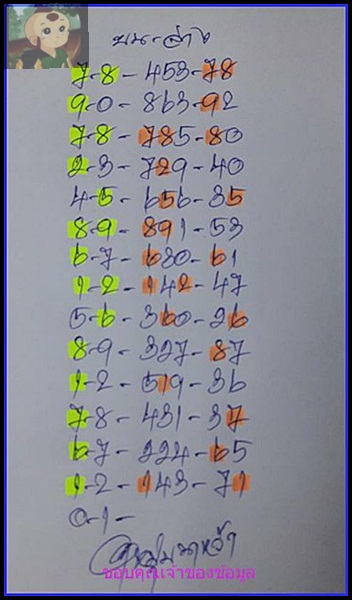 บน-ล่าง
7-8-453-78
9-0-863-92
7-8-785-80
2-3-729-40
4-5-656-35
8-9-891-53
6-7-630-61
1-2-142-47
5-6-360-26
8-9-327-87
1-2-519-36
7-8-431-37
6-7-224-65
1-2-143-71
0-1-
ขอบคุณเจ้าของข้อมูล